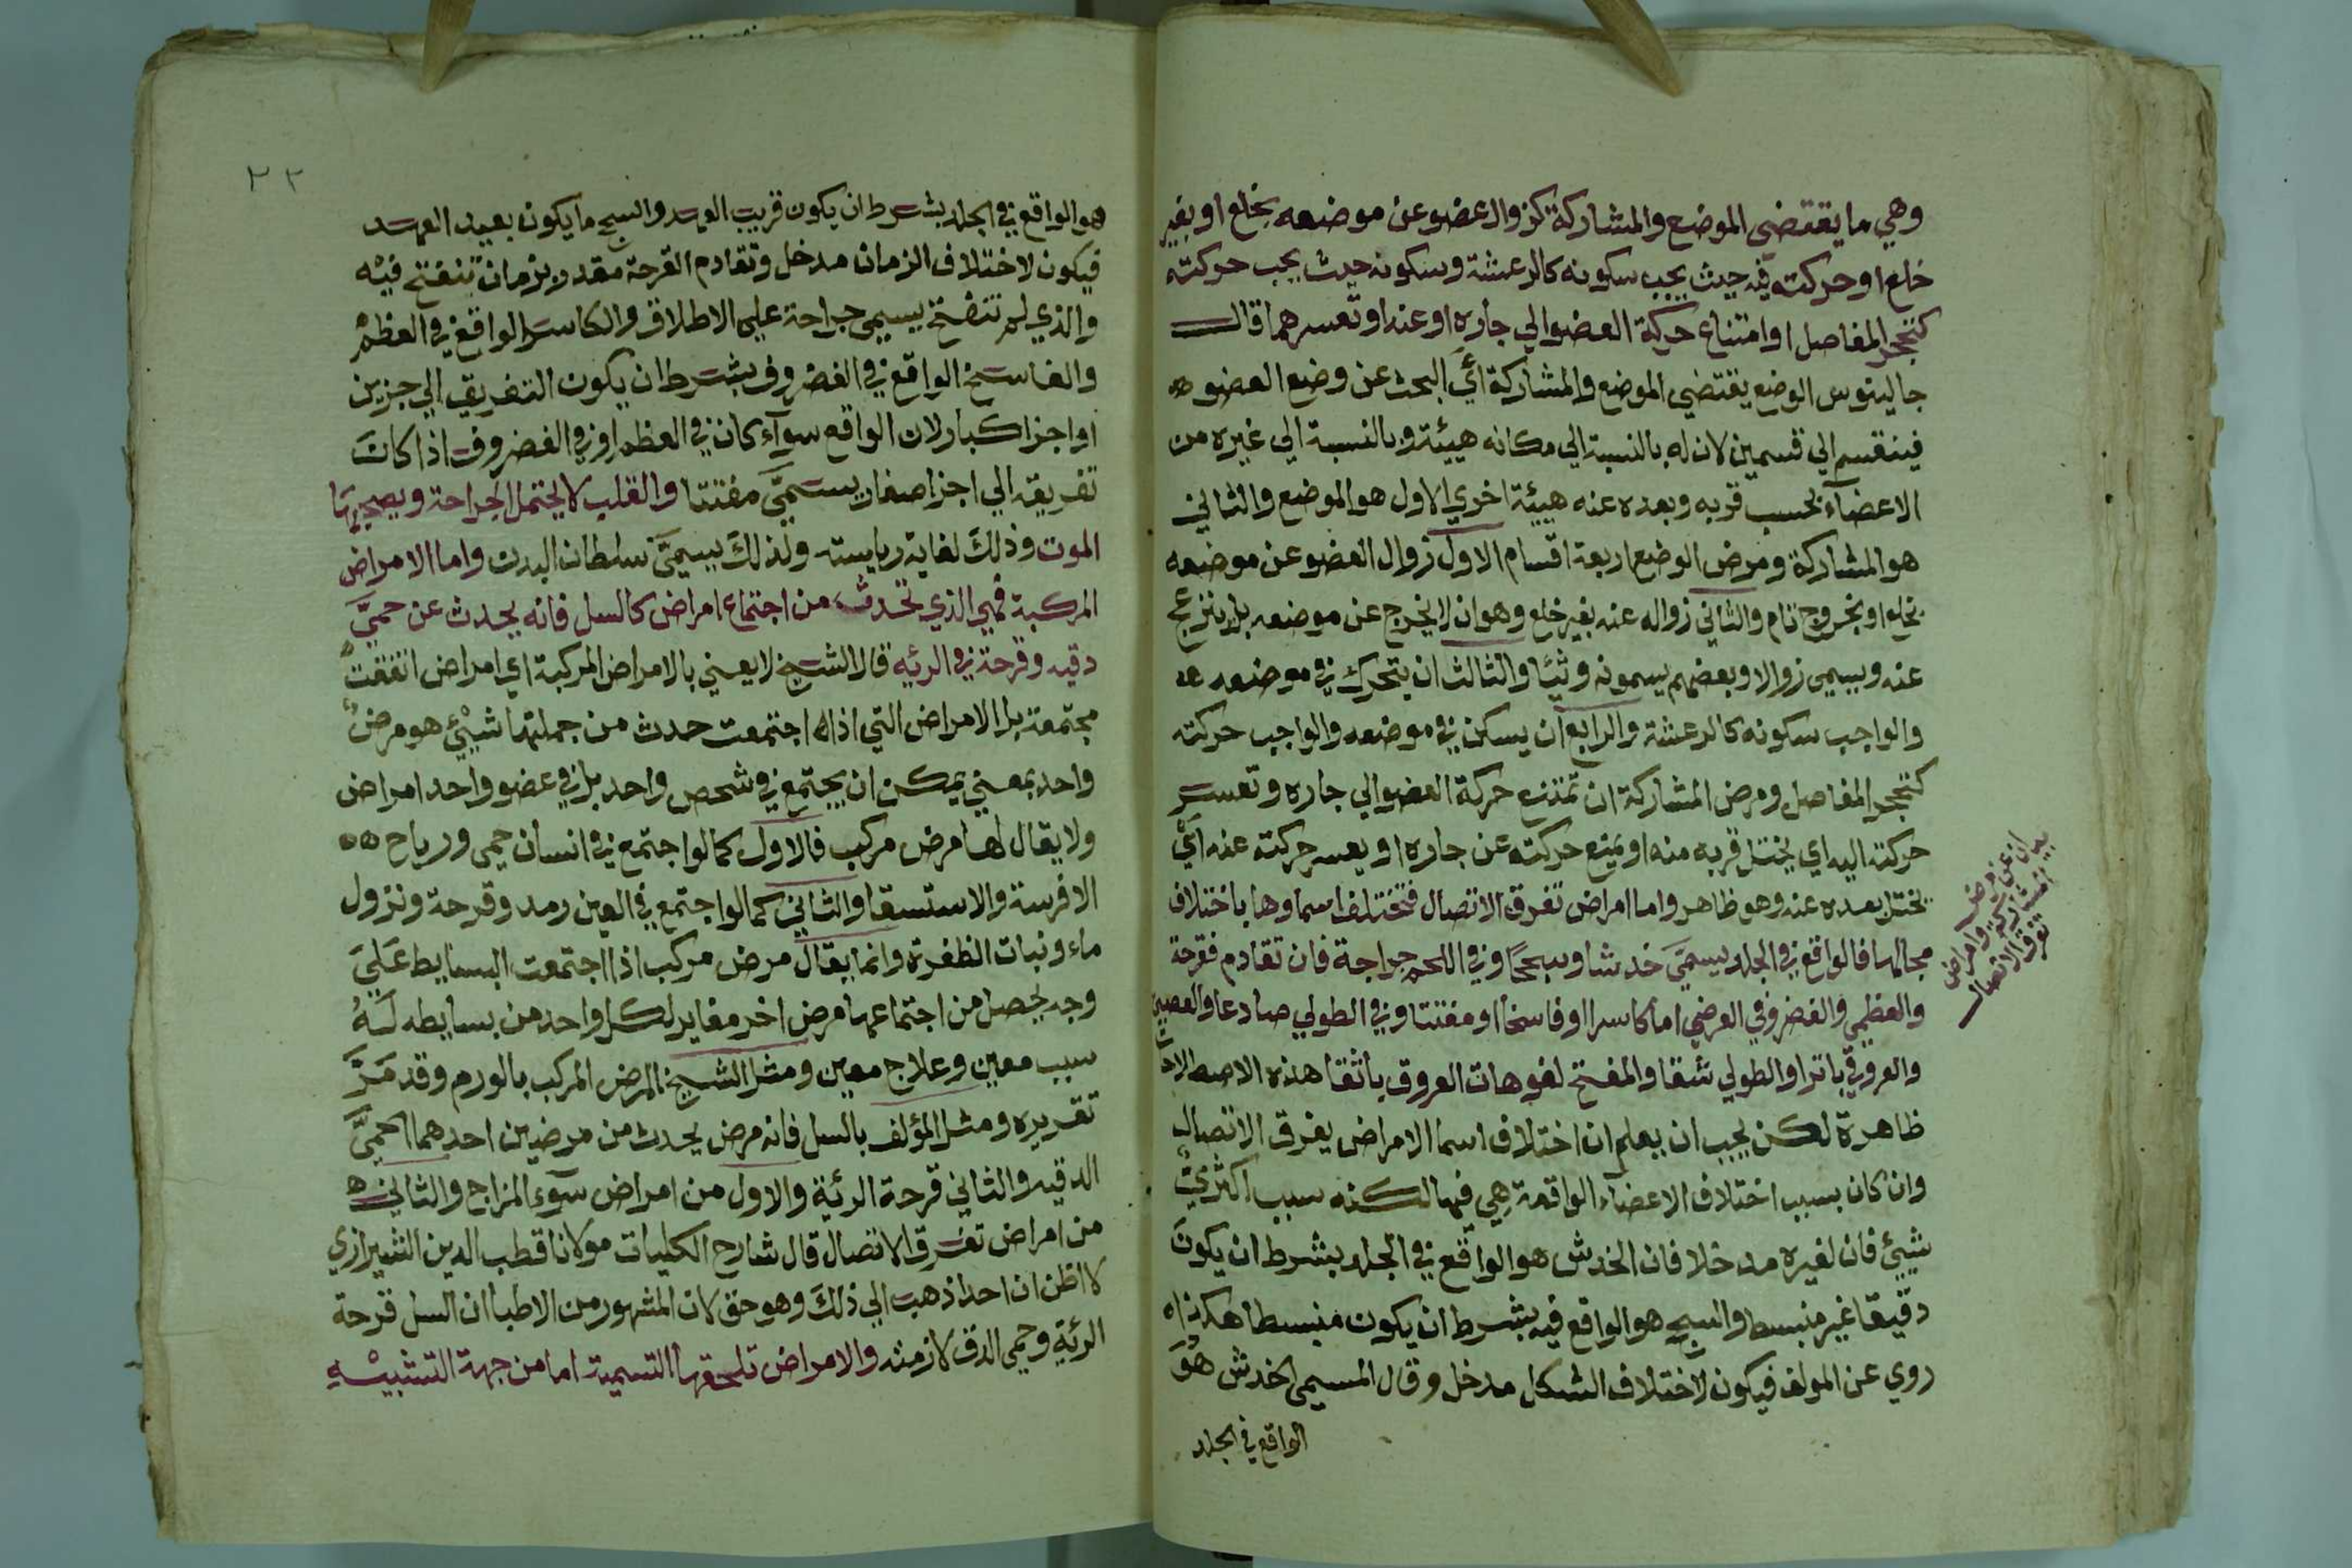 وهي ما يقتضي الموضع والمشاركة كزوال عضو عن موضعه بخلع او بغير
خلع او حركته فيه حيث يجب سكونه كالرعشة وسكونه حيث يجب حركته
كتحجر المفاصل او امتناع حركة العضو الي جاره او عنه او تعسرهما قال
جالينوس الوضع يقتضي الموضع والمشاركة أي البحث عن وضع العضو
فينقسم الي قسمين لان له بالنسبة الي مكانه هيئة وبالنسبة الي غيره من
الاعضاء بحسب قربه وبعده عنه هيئة اخري الاول هو الموضع والثاني
هو المشاركة ومرض الوضع اربعة اقسام الاول زوال العضو عن موضعه
بخلع او بخروج تام والثاني زواله عنه بغير خلع وهو ان لا يخرج عن موضعه بل ينزعج
عنه ويسمي زوالا وبعضهم يسمونه وثيا والثالث ان يتحرك في موضعه
والواجب سكونه كالرعشة والرابع ان يسكن في موضعه والواجب حركته
كتحجر المفاصل ومرض المشاركة ان تمتنع حركة العضو الي جاره وتعسر
حركته اليه اي يختل قربه منه او يمنع حركته عن جاره او يعسر حركته عنه أي
يختل بعده عنه وهو ظاهر واما امراض تفرق الاتصال فتختلف اسماوها باختلاف
محالها فالواقع في الجلد يسمي خدشا وسحجا وفي اللحم جراحة فان تقادم فقرحة
والعظمي والغضروفي العرضي اما كاسرا او فاسخا او مفتتا وفي الطولي صادعا والعصبي
والعروقي باترا والطولي شقا والمفتح لفوهات العروق باثقا هذه الاصطلاحات
ظاهرة لكن يجب ان يعلم ان اختلاف اسما الامراض يفرق الاتصال
وان كان بسبب اختلاف الاعضاء الواقعة هي فيها لكنه سبب اكثري
شيئ فان لغيره مدخلا فان الخدش هو الواقع في الجلد بشرط ان يكون
دقيقا غير منبسط والسحج هو الواقع فيه بشرط ان يكون منبسطا هكذا
روي عن المولف فيكون لاختلاف الشكل مدخل وقال المسيحي الخدش هو
الواقع في الجلد
بيان عن مرض
المشاركة وامراض
تفرق الاتصال
٢٢
هو الواقع في الجلد بشرط ان يكون قريب العهد والسحج ما يكون بعيد العهد
فيكون لاختلاف الزمان مدخل وتقادم القرحة مقدر بزمان تنفتح فيه
والذي لم تنفتح يسمي جراحة علي الاطلاق والكاسر الواقع في العظم
والفاسخ الواقع في الغضروف بشرط ان يكون التفريق الي جزين
او اجزا كبار لان الواقع سوآء كان في العظم او في الغضروف اذا كان
تفريقه الي اجزا صغار يسمي مفتتا والقلب لا يحتمل الجراحة ويصحبها
الموت وذلك لغاية رياسته ولذلك يسمي سلطان البدن واما الامراض
المركبة فهي الذي تحدث من اجتماع امراض كالسل فانه يحدث عن حمي
دقيه وقرحة في الرئيه قال الشيخ لا يعني بالامراض المركبة اي امراض اتفقت
مجتمعة بل الامراض التي اذا اجتمعت حدث من جملتها شيئ هو مرض
واحد بمعني يمكن ان يجتمع في شخص واحد بل في عضو واحد امراض
ولا يقال لها مرض مركب فالاول كما لو اجتمع في انسان حمي ورياح
الافرسة والاستسقا والثاني كما لو اجتمع في العين رمد وقرحة ونزول
ماء ونبات الظفرة وانما يقال مرض مركب اذا اجتمعت البسايط علي
وجه يحصل من اجتماعها مرض اخر مغاير لكل واحد من بسايطه له
سبب معين وعلاج معين ومثل الشيخ المرض المركب بالورم وقد مر
تقريره ومثل المؤلف بالسل فانه مرض يحدث من مرضين احدهما الحمي
الدقيه والثاني قرحة الرئية والاول من امراض سوء المزاج والثاني
من امراض تفرق الاتصال قال شارح الكليات مولانا قطب الدين الشيرازي
لا اظن ان احدا ذهب الي ذلك وهو حق لان المشهور من الاطبا ان السل قرحة
الرئية وحمي الدق لازمته والامراض تلحقها التسمية اما من جهة التشبيه